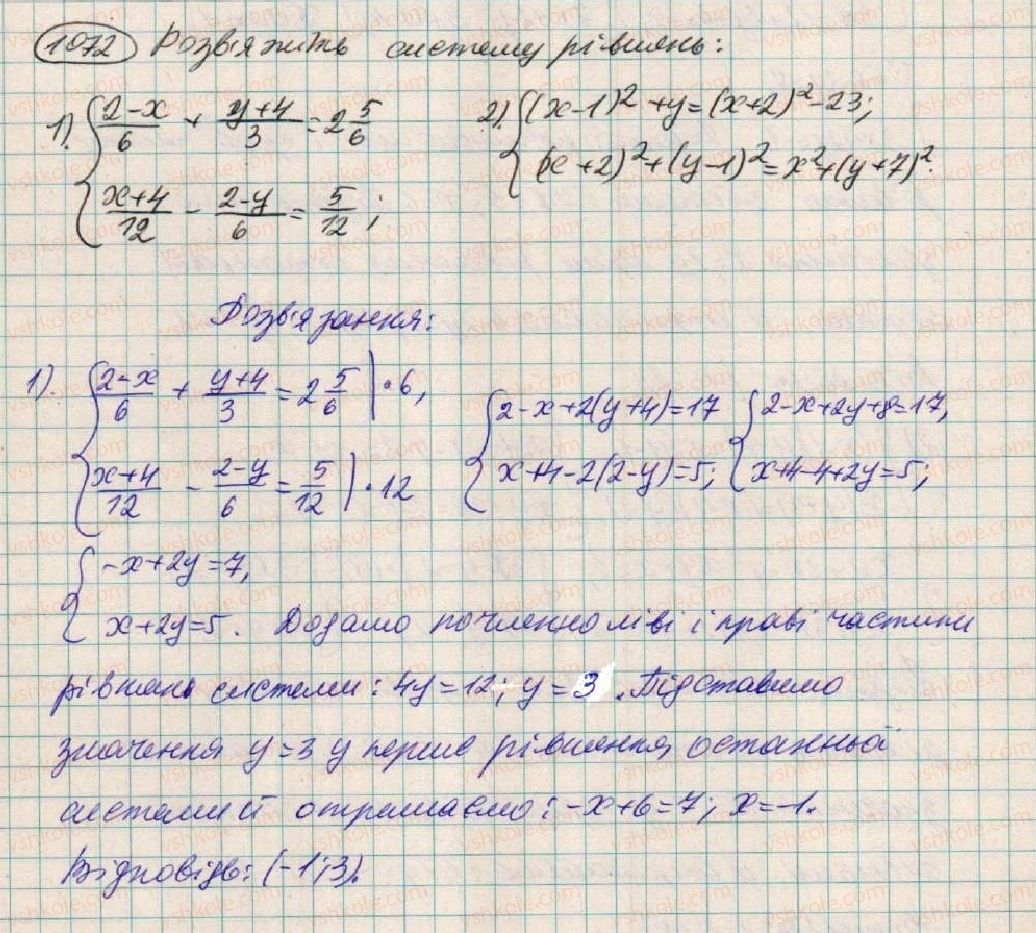 1072 Розв'яжіть систему рівнянь:
1). { (2-x)/6 + (y+4)/3 = 2 5/6
(x+4)/12 - (2-y)/6 = 5/12;
2). { (x-1)²+y=(x+2)²-23;
(x+2)²+(y-1)²=x²+(y+7)².
Розв'язання:
1). { (2-x)/6 + (y+4)/3 = 2 5/6 | •6,
(x+4)/12 - (2-y)/6 = 5/12 | •12
{ 2-x+2(y+4)=17
x+4-2(2-y)=5;
{ 2-x+2y+8=17,
x+4-4+2y=5;
{ -x+2y=7,
x+2y=5. Додамо почленно ліві і праві частини
рівнянь системи: 4y=12; y=3. Підставимо
значення y=3 у перше рівняння останньої
системи й отримаємо: -x+6=7; x=-1.
Відповідь: (-1;3).